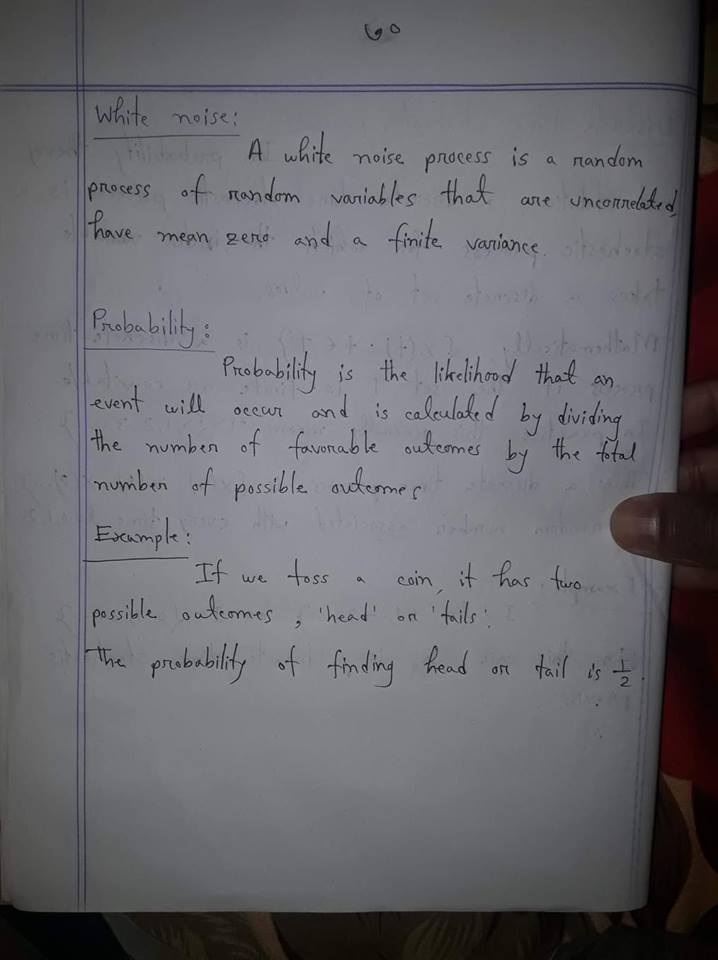 White noise:
A white noise process is a random
process of random variables that are uncorrelated,
have mean zero and a finite variance.
Probability:
Probability is the likelihood that an
event will occur and is calculated by dividing
the number of favorable outcomes by the total
number of possible outcomes
Example:
If we toss a coin, it has two
possible outcomes, 'head' or 'tails'.
The probability of finding head or tail is 1/2.